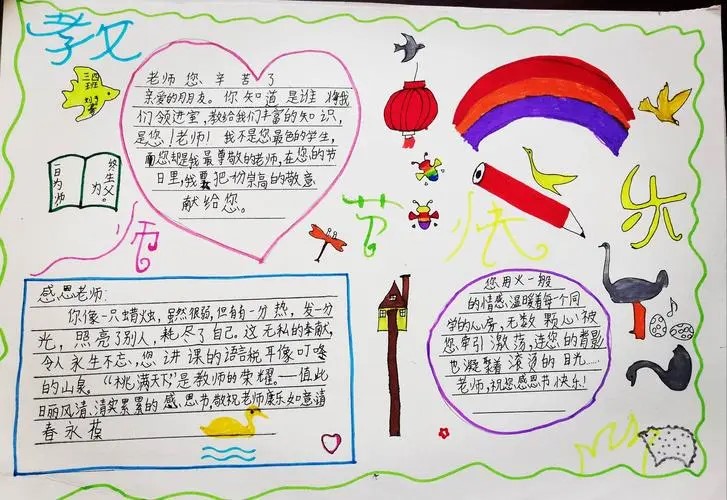 教
师
节
快
乐
三四
班
老师您辛苦了
亲爱的朋友。你知道是谁将我
们领进室,教给我们丰富的知识,
是您!老师!我不是您最色的学生,
而您却是我最尊敬的老师,在您的节
日里,我要把崇高的敬意
献给您。
一日为师,
终生为父。
感恩老师:
你像一只蜡烛,虽然很弱,但有一分热,发一分
光,照亮了别人,耗尽了自己。这无私的奉献,
令人永生不忘,您讲课的语言像叮咚
的山泉。“桃满天下”是教师的荣耀。一值此
日丽风清、清实累累的感恩节,敬祝老师康乐如意请
春永葆
您用火一般
的情感温暖着每个同
学的心房,无数颗心被
您牵引激荡,连您的背影
也凝聚着滚烫的目光……
老师,祝您感恩节快乐!